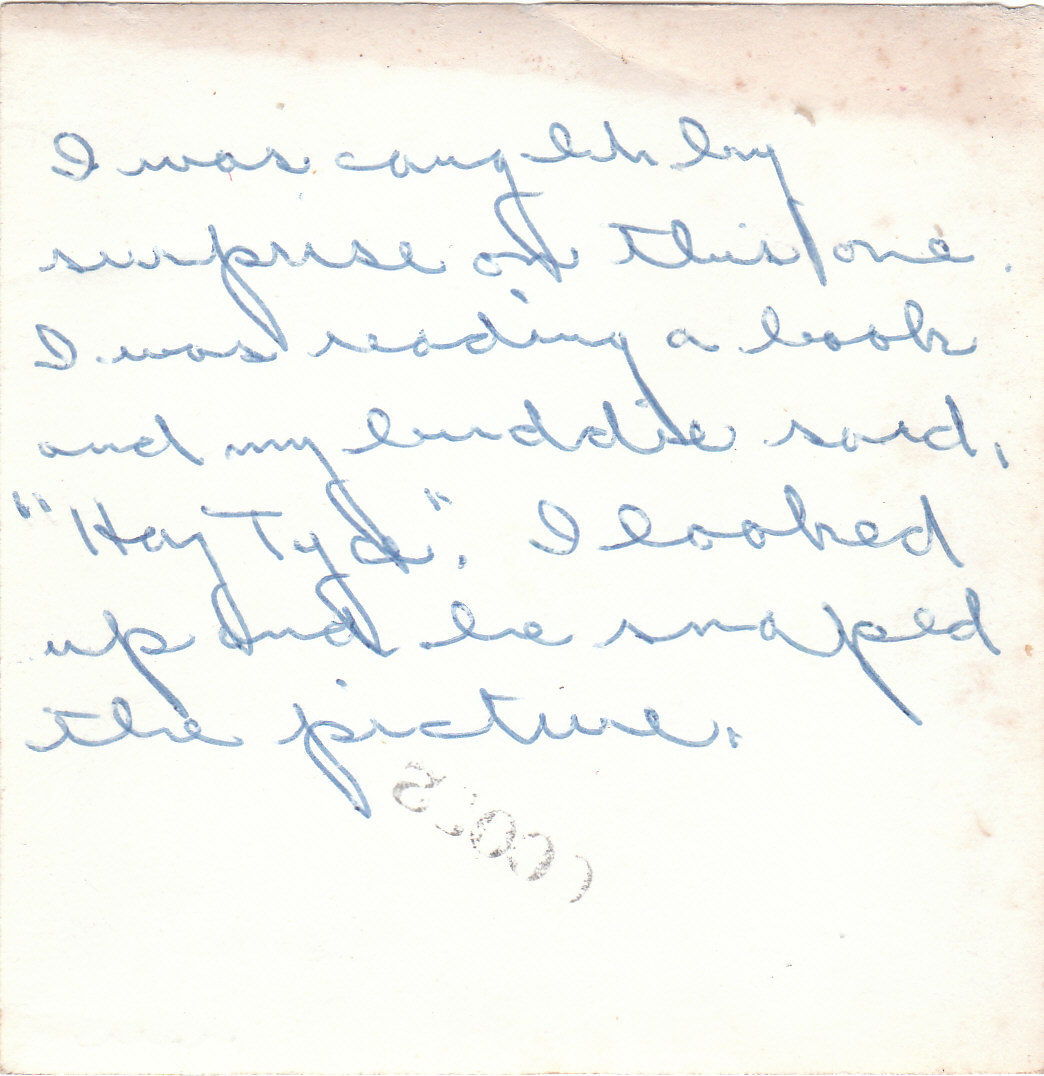 I was caught by
surprise on this one.
I was reading a book
and my buddie said,
"Hay Tyck". I looked
up and he snaped
the picture.